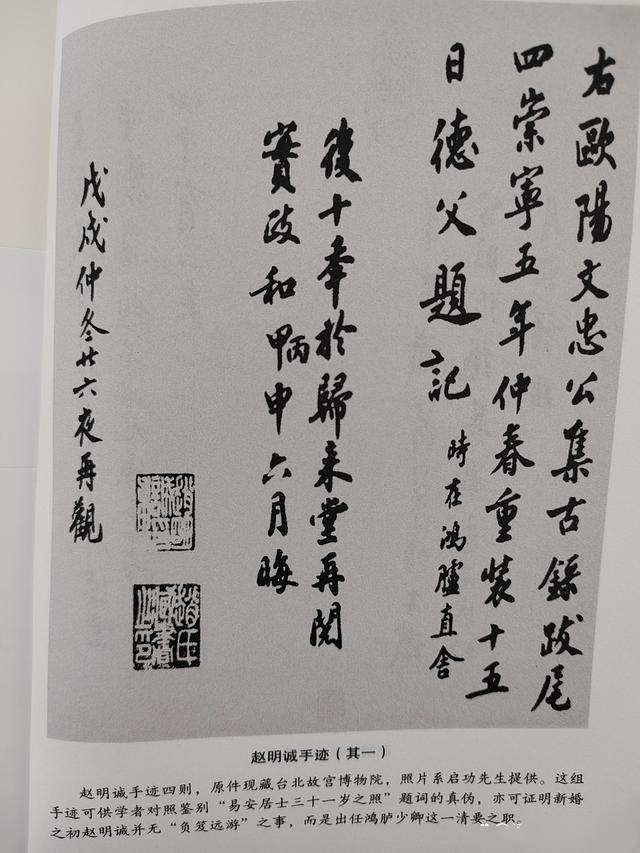 右歐陽文忠公集古錄跋尾
四崇寧五年仲春重裝十五
日德父題記
時在鴻臚直舍
後十年於歸來堂再閱
實政和甲丙申六月晦
戊戌仲冬廿六夜再觀
趙氏藏書之印
赵明诚手迹（其一）
赵明诚手迹四则，原件现藏台北故宫博物院，照片系启功先生提供。这组
手迹可供学者对照鉴别“易安居士三十一岁之照”题词的真伪，亦可证明新婚
之初赵明诚并无“负笈远游”之事，而是出任鸿胪少卿这一清要之职。